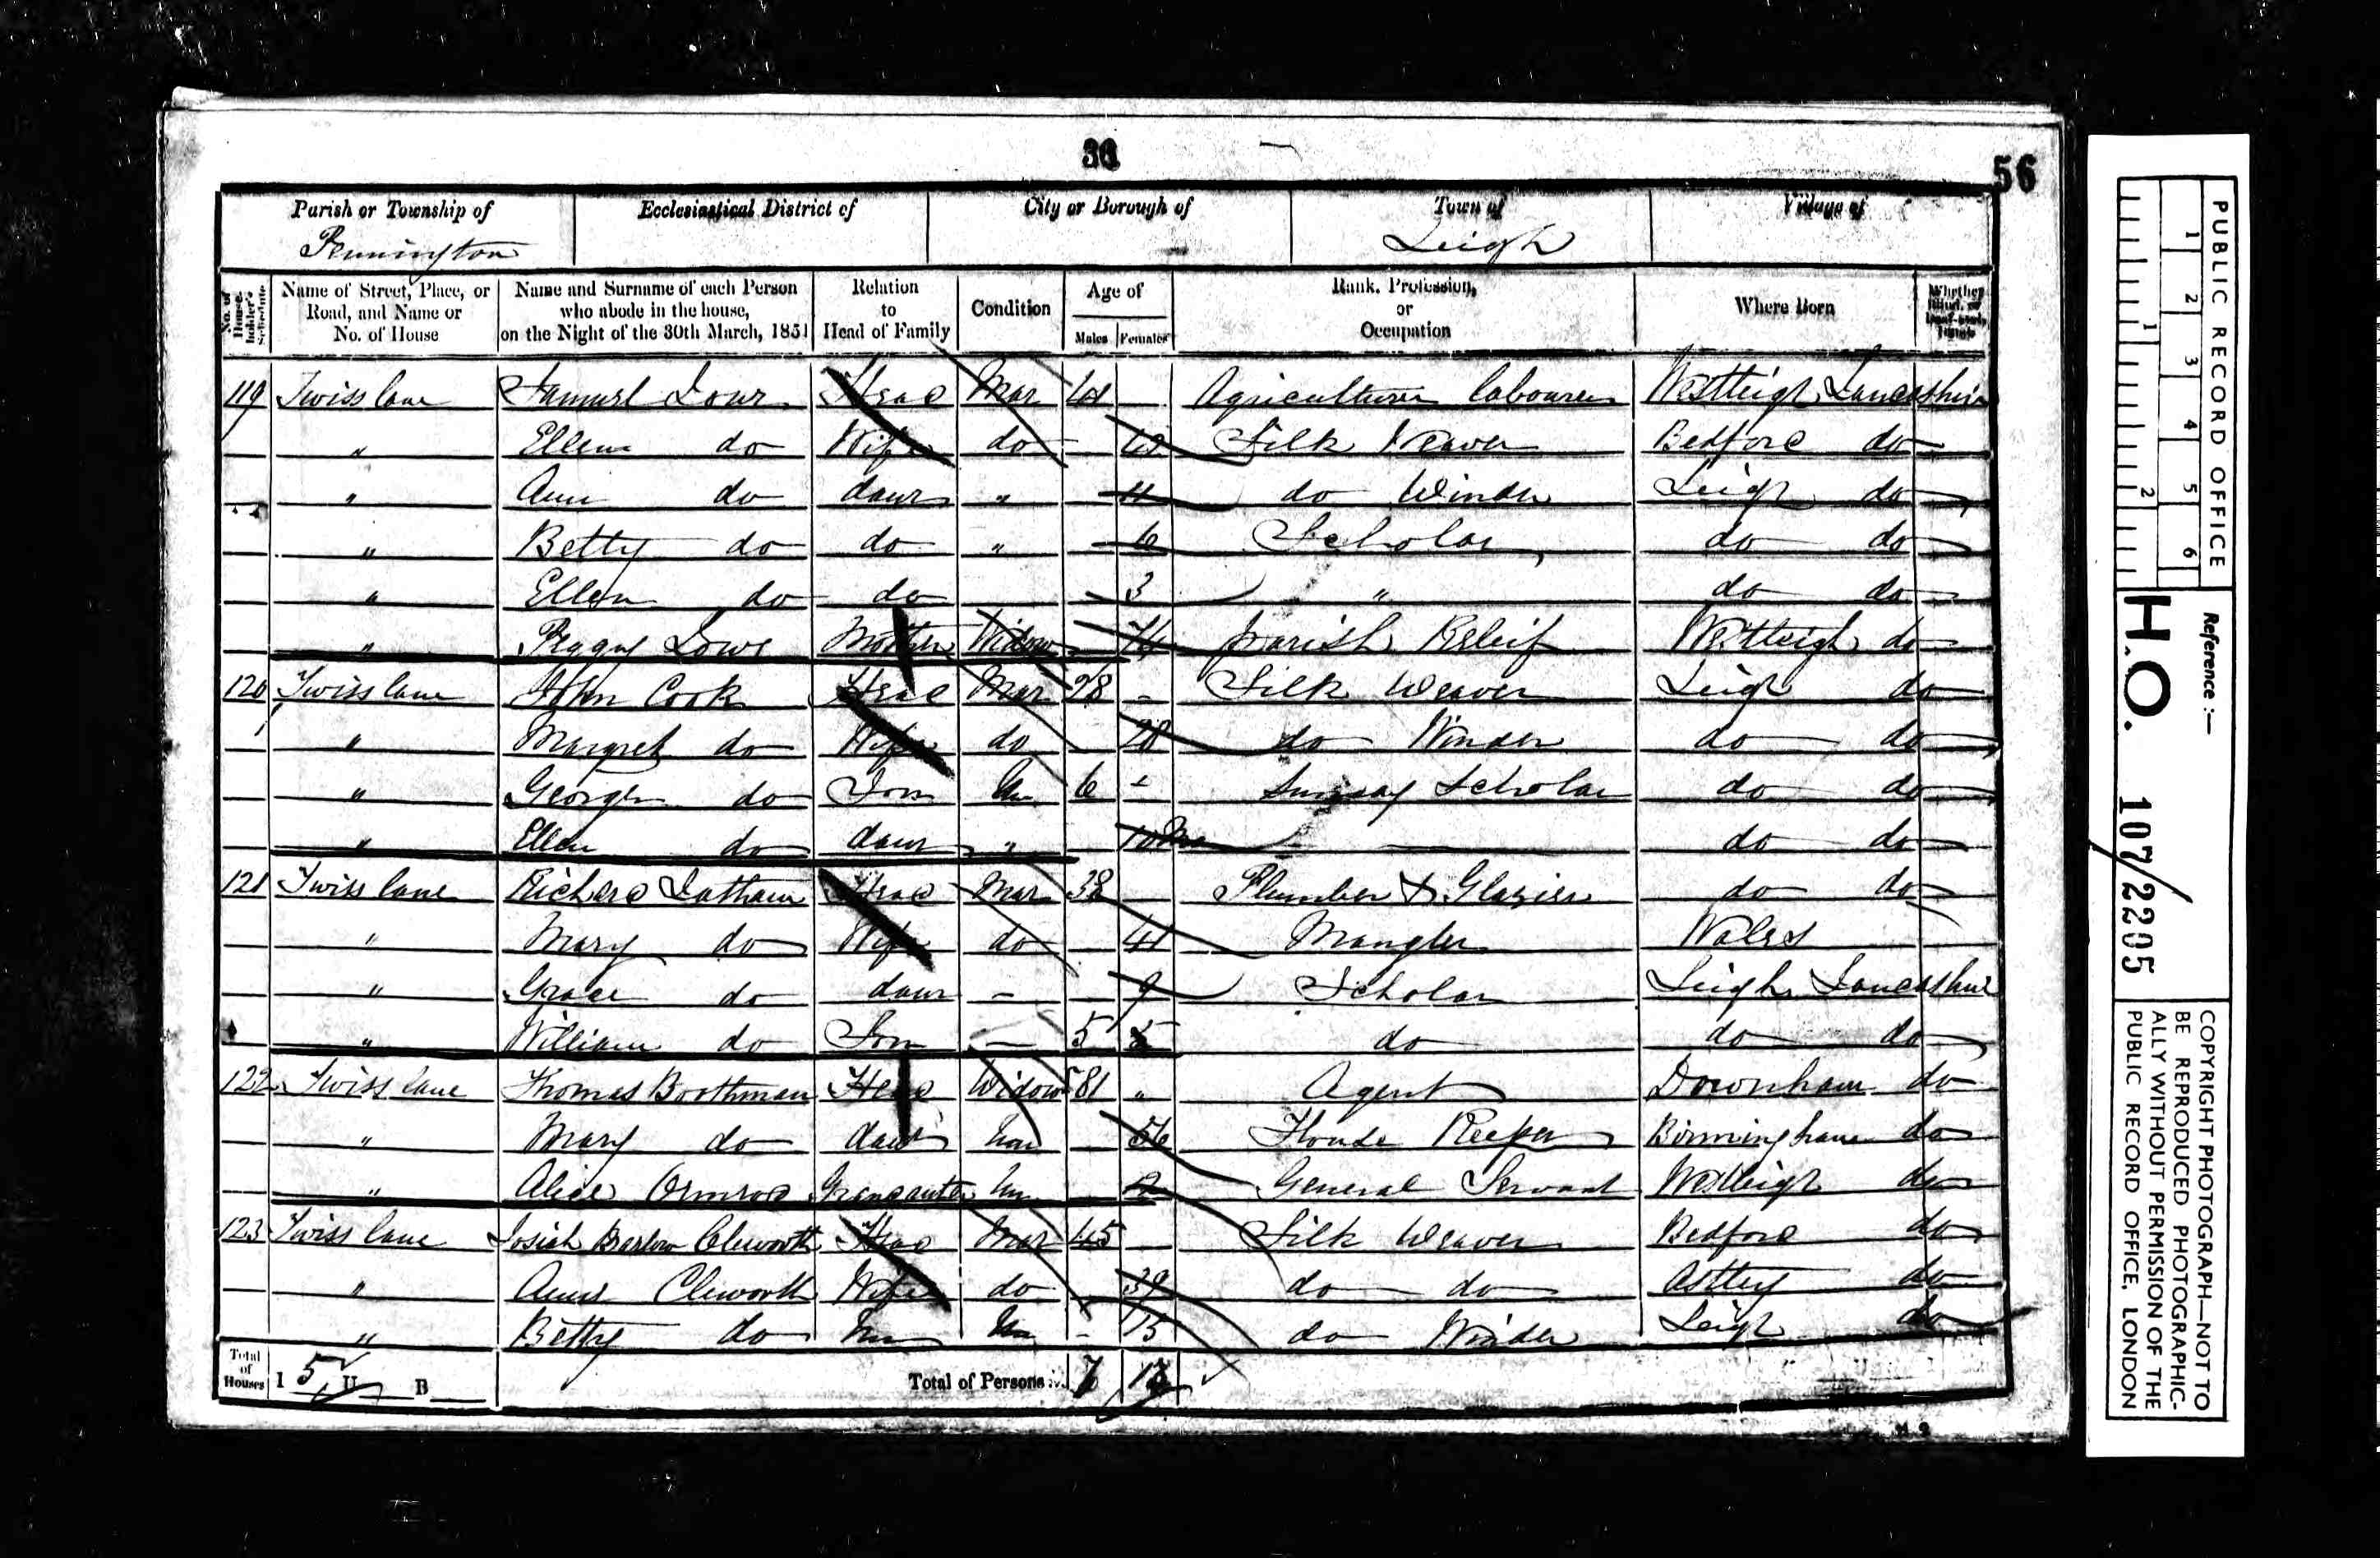 56
Parish or Township of Ecclesiastical District of City or Borough of Town of Village of
Pennington Leigh
No. of House-holder's Schedule
Name of Street, Place, or Road, and Name or No. of House
Name and Surname of each Person who abode in the house, on the Night of the 30th March, 1851
Relation to Head of Family
Condition
Age of
Males Females
Rank, Profession, or Occupation
Where Born
Whether Blind, or Deaf-and-Dumb
119 Twiss lane Samuel Lowe Head Mar Westleigh Lancashire
" Ellen do Wife do Silk Weaver Bedford do
" Ann do daur " 11 do Winder Leigh do
" Betty do do " 6 Scholar do do
" Ellen do do 3 " do do
" Peggy Lowe Mother Widow Parish Releif Westleigh do
120 Twiss lane John Cook Head Mar 28 - Silk Weaver Leigh do
" Margret do Wife do 28 do Winder do do
" George do Son Un 6 - Sunday Scholar do do
" Ellen do daur " 10 Mo do do
121 Twiss lane Richard Latham Head Mar 38 Plumber & Glazier do do
" Mary do Wife do 41 Mangler Wales
" Grace do daur - 9 Scholar Leigh Lancashire
" William do Son - 5 do do do
122 Twiss lane Thomas Boothman Head Widow 81 " Agent Downham do
" Mary do daur Un 56 House Keeper Birmingham do
" Alice Ormrod Un General Servant Westleigh do
123 Twiss lane Josiah Barlow Cleworth Head Mar 45 Silk Weaver Bedford do
" Cleworth Wife do 39 do do Astley do
" Betty do Un Un - 15 do Winder Leigh do
Total of Houses I 5 U B Total of Persons 7 13
PUBLIC RECORD OFFICE
1 2 3 4 5 6
1 2
Reference :-
H.O. 107/2205
COPYRIGHT PHOTOGRAPH—NOT TO
BE REPRODUCED PHOTOGRAPHIC-
ALLY WITHOUT PERMISSION OF THE
PUBLIC RECORD OFFICE, LONDON